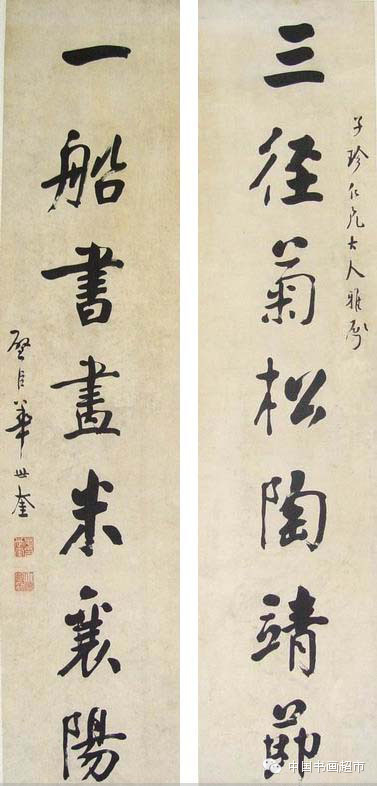 子珍仁兄大人雅屬
三徑菊松陶靖節
一船書畫米襄陽
璧臣華世奎
中国书画超市